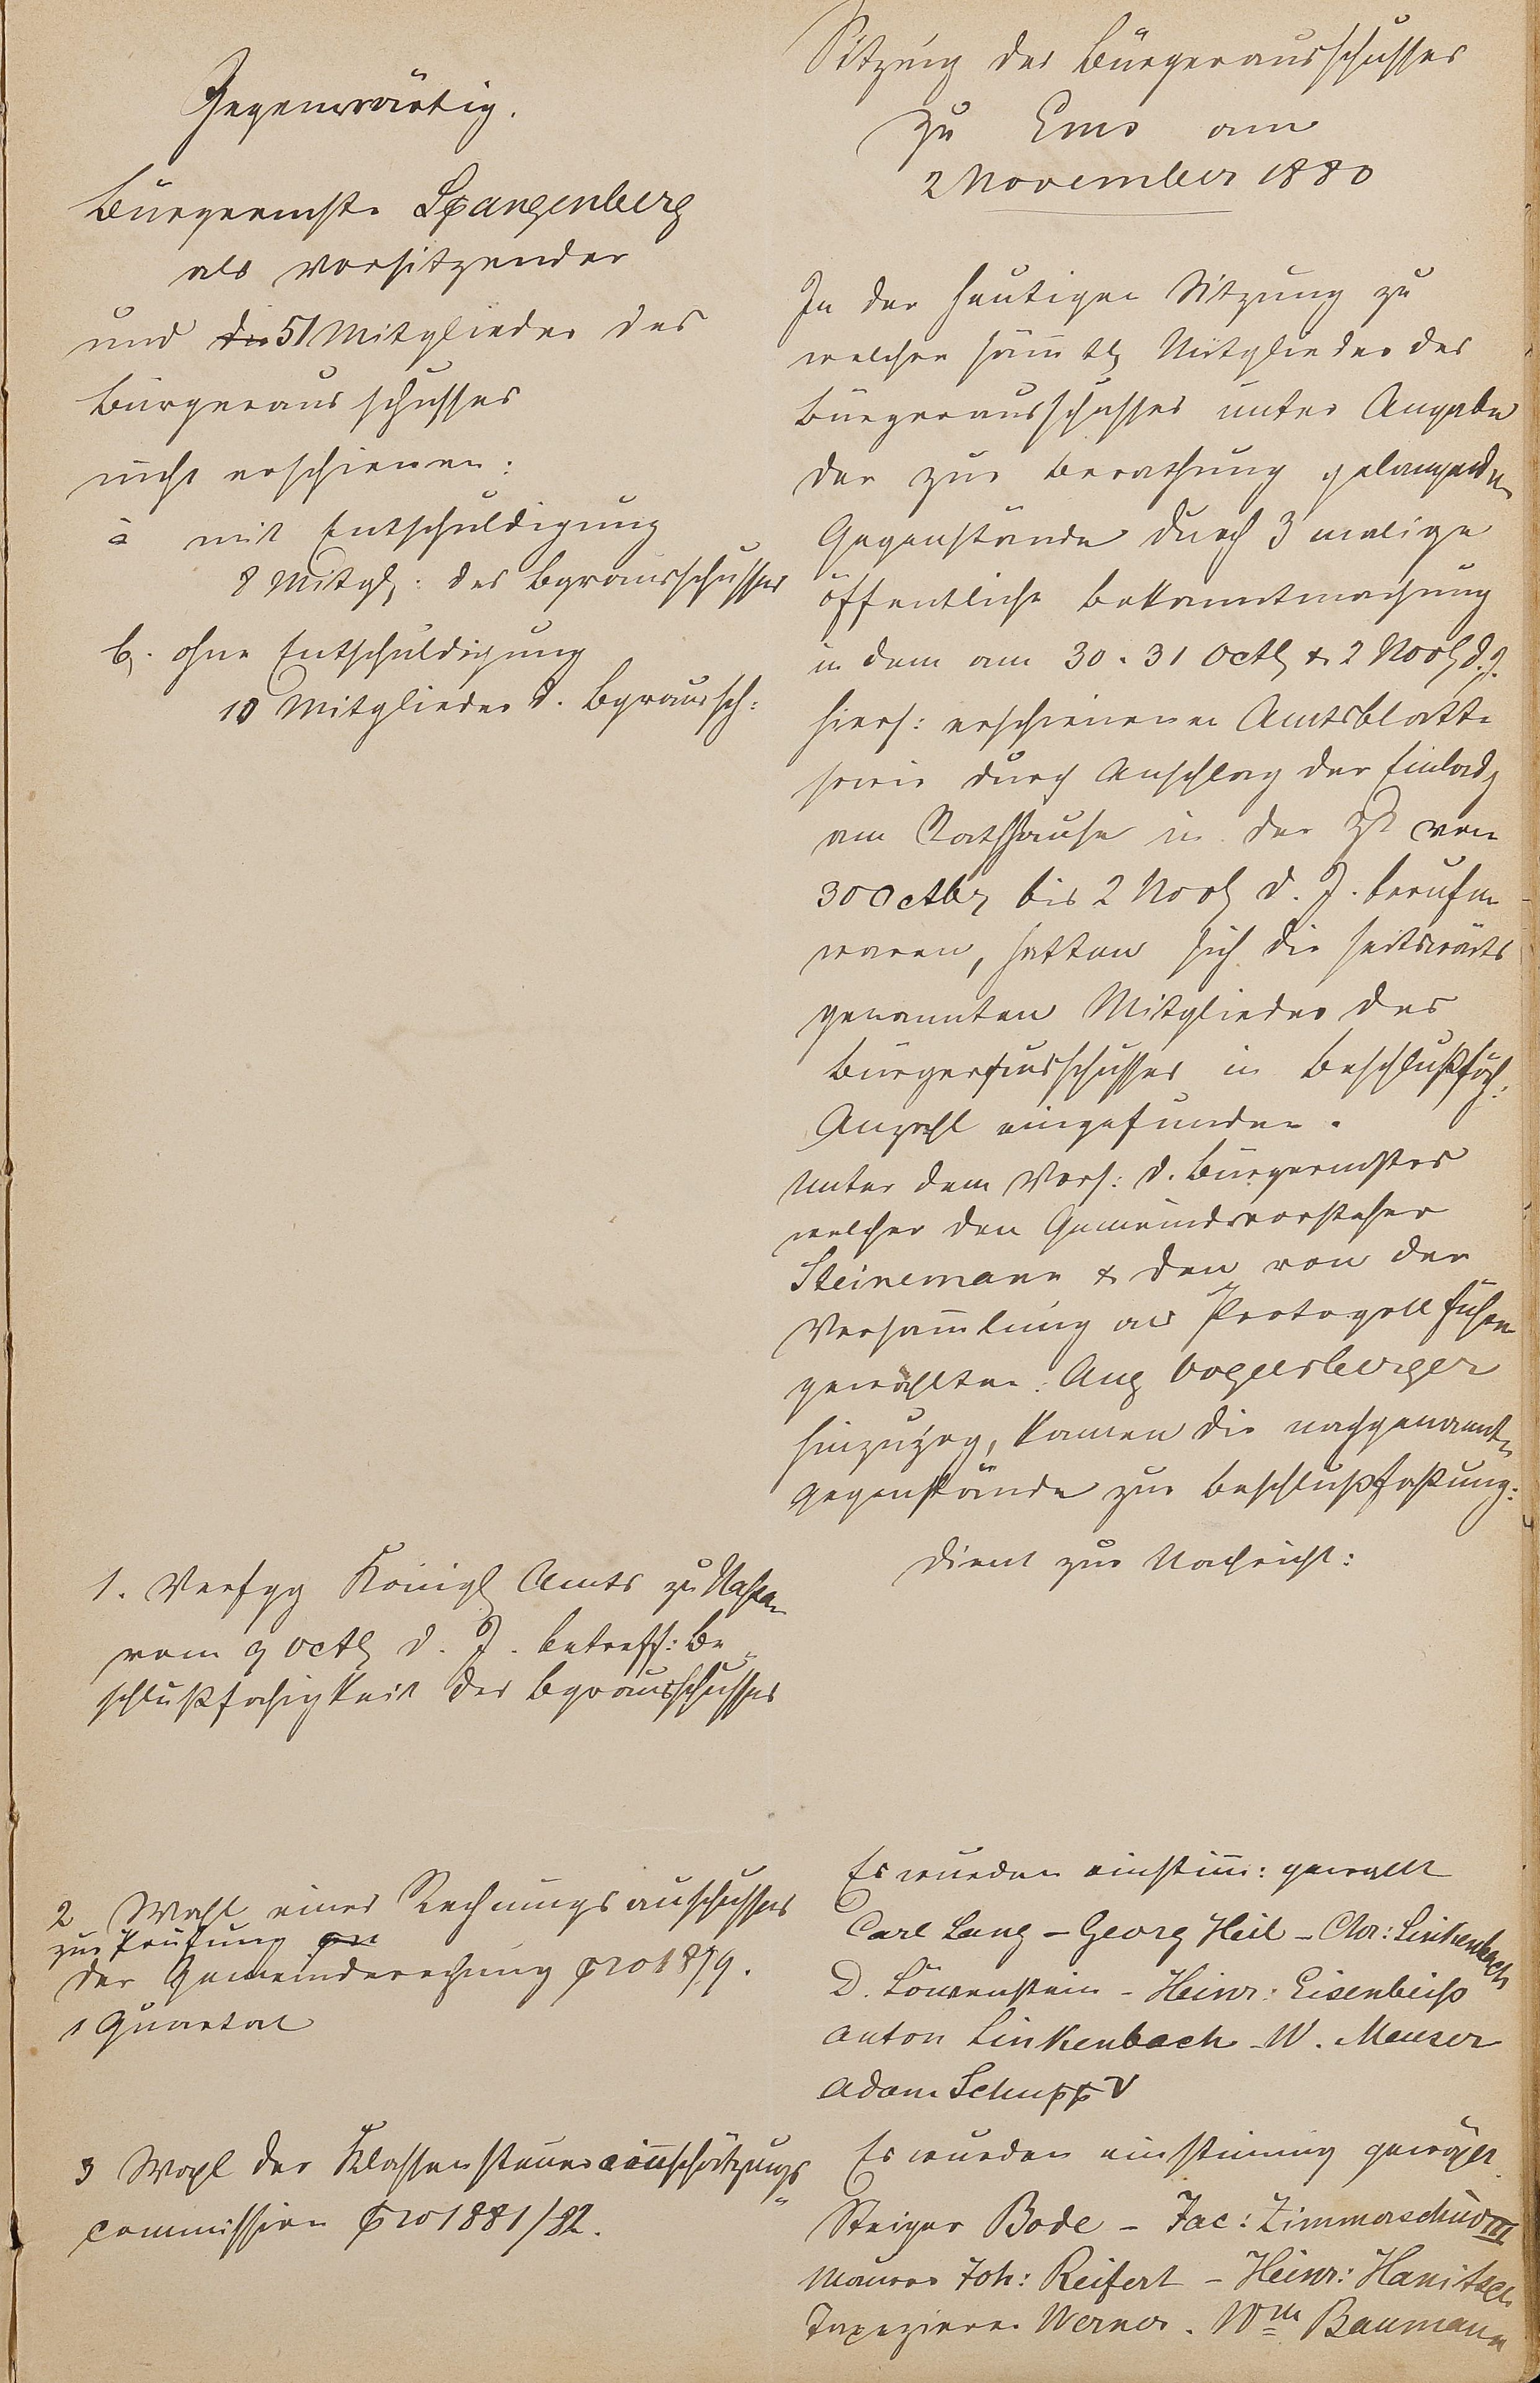 Gegenwärtig.
Bürgermstr Spangenberg
als Vorsitzender
und die 51 Mitglieder des
Bürgerausschusses
nicht erschienen:
a mit Entschuldigung
8 Mitgl: des Bgrausschusses
b. ohne Entschuldigung
10 Mitglieder d. Bgraussch:
Sitzung des Bürgerausschusses
zu Ems am
2 November 1880
In der heutigen Sitzung zu
welcher sämtl Mitglieder des
Bürgerausschusses unter Angabe
der zur Berathung gelangenden
Gegenstände durch 3 malige
öffentliche Bekanntmachung
in dem am 30. 31 Octb & 2 Novb d. J.
hiers: erschienenen Amtsblatte
sowie durch Anschlag der Einladg
am Rathhause in der Zt von
30 Octbr bis 2 Novb d. J. berufen
waren, hatten sich die seitwärts
genannten Mitglieder des
Bürgerausschusses in beschlußfäh:
Anzahl eingefunden.
Unter dem Vors: d. Bürgermstrs
welcher den Gemeindevorsteher
Steinemann & den von der
Versammlung als Protogollführer
gewählten: Aug Vogelsberger
hinzuzog, kamen die nachgenannten
Gegenstände zur Beschlußfaßung:
1. Verfgg Königl Amts zu Nassau
vom 9 Octb d. J. betreff: Be-
schlußfähigkeit des Bgrausschusses
Dient zur Nachricht:
2 Wahl eines Rechnungsauschusses
zur Prüfung pro
der Gemeinderechung pro 1879.
1 Quartal
Es wurden einstim: gewählt
Carl Lang – Georg Heil – Chr: Linkenbach
D. Löwenstein – Heinr: Eisenbeiß
Anton Linkenbach – W. Meuser
Adam Schupp V
3 Wahl der Klassensteuereinschätzungs-
commission pro 1881/82.
Es wurden einstimmig gewählt
Steiger Bode – Jac: Zimmerschied III
Maurer Joh: Reifert – Heinr: Hanitzel
Tapezierer Werner. Wm Baumann